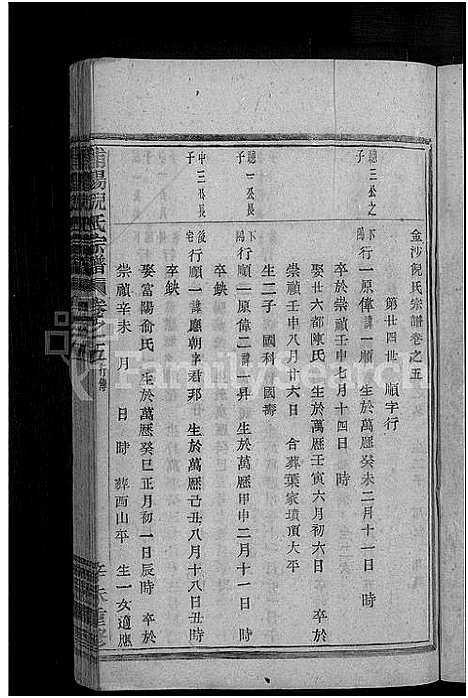 金沙倪氏宗譜卷之五
第廿四世 順字行
總三公之子
下陽行一原偉諱一順 生於萬厯癸未二月十一日 時
卒於崇禎壬申七月十四日 時
娶廿六都陳氏 生於萬厯壬寅六月初六日 卒於
崇禎壬申八月廿六日 合葬葉家墳頂大平
生二子 國科 國壽
總一公長子
下陽行順一原偉二諱一昇 生於萬厯甲申二月十一日 時
卒缺
中三公長子
後宅行順一諱廳朝字君邦 生於萬厯己丑八月十八日丑時
卒缺
娶富陽俞氏 生於萬厯癸巳正月初一日辰時 卒於
崇禎辛未 月 日 時 葬西山平 生一女適應
浦陽倪氏宗譜 卷之五 行傳
辛未重修
FamilySearch